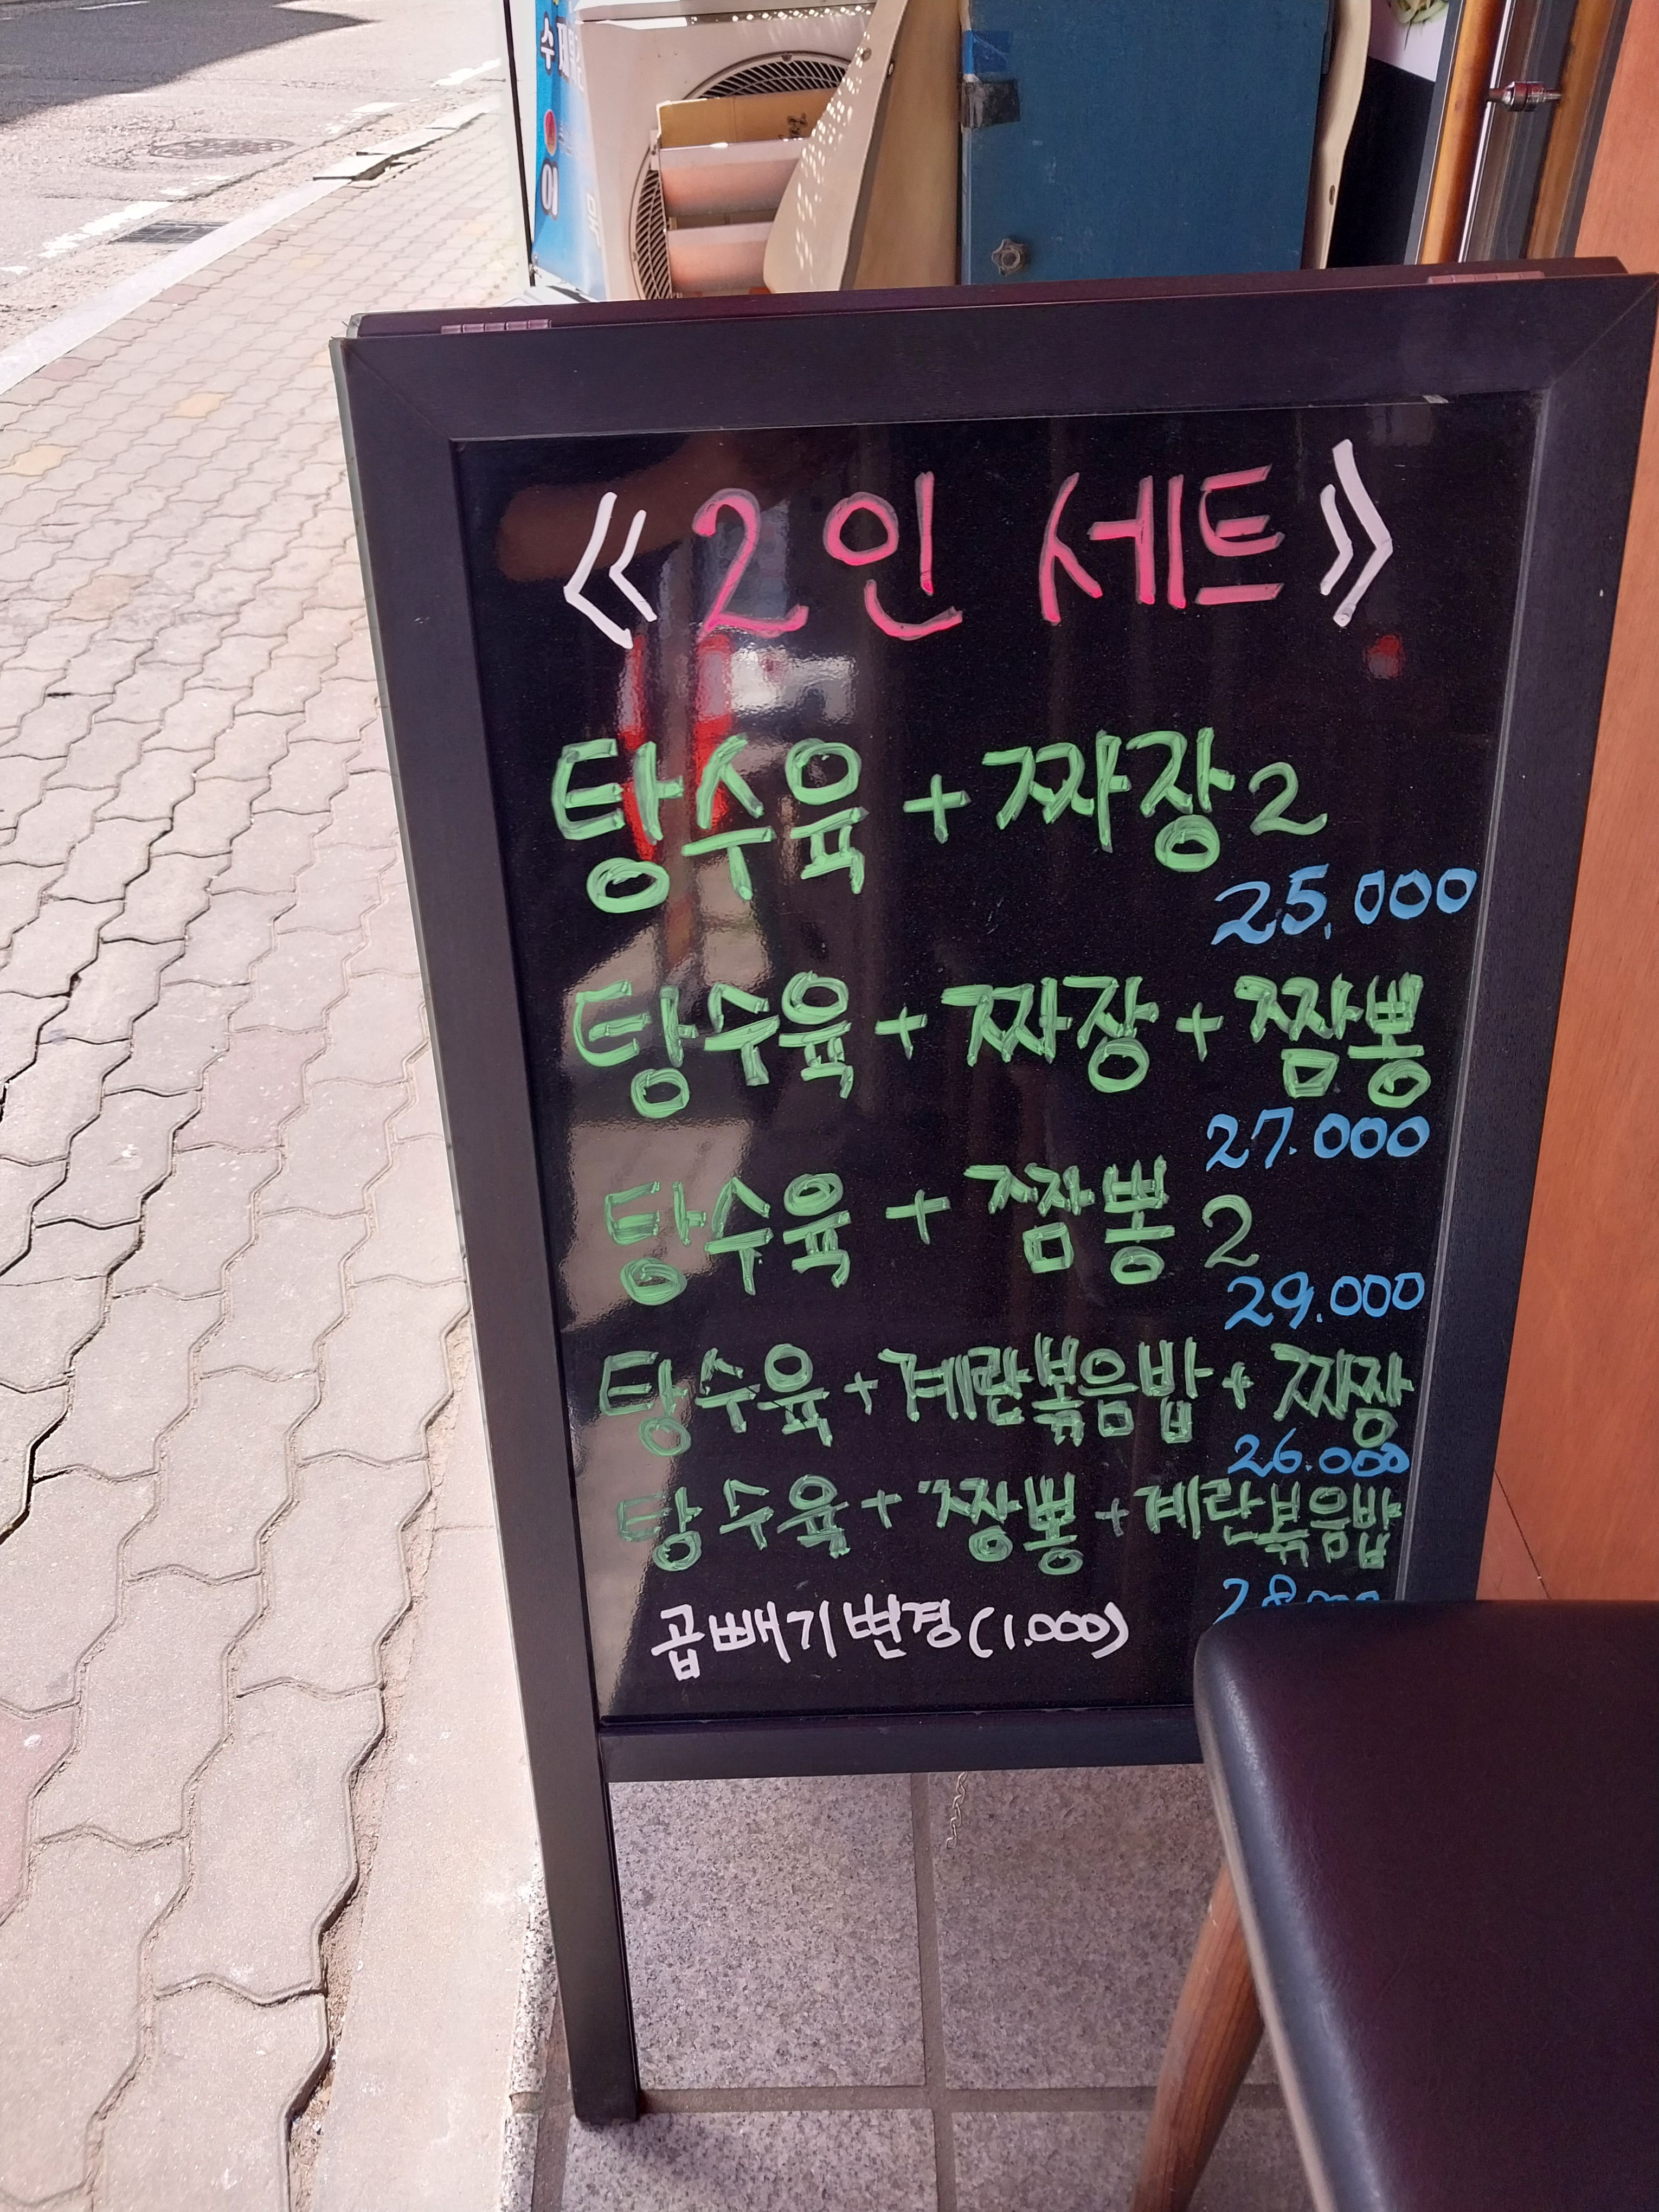 수제
이
《2인 세트》
탕수육 + 짜장2
25,000
탕수육 + 짜장 + 짬뽕
27.000
탕수육 + 짬뽕 2
29.000
탕수육 + 계란볶음밥 + 짜장
26.000
탕수육 + 짱뽕 + 계란볶음밥
28.000
곱빼기변경(1.000)